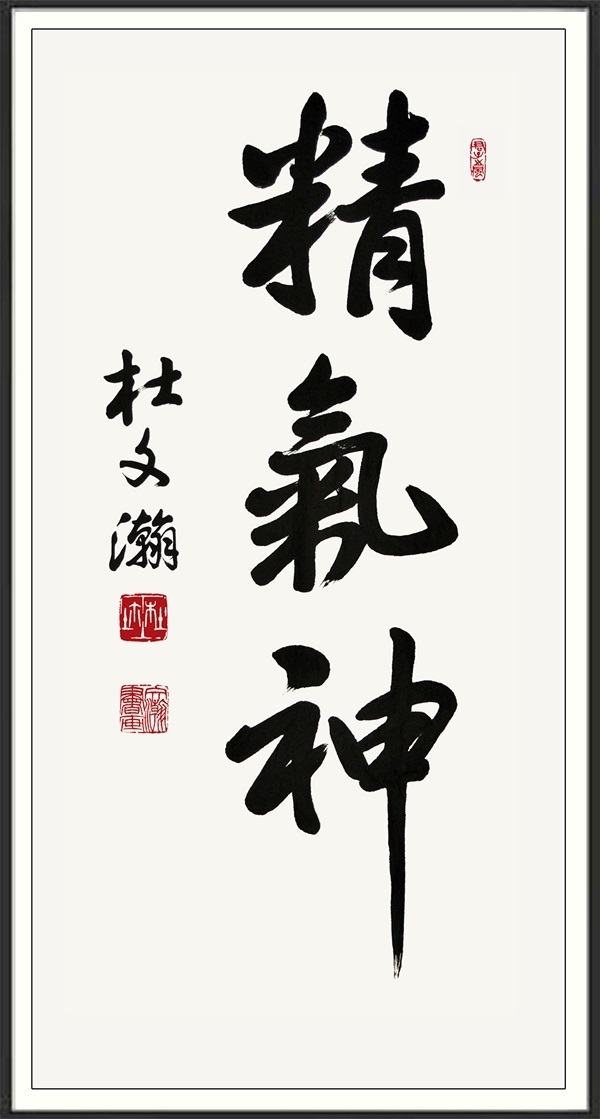 精氣神
杜文瀚